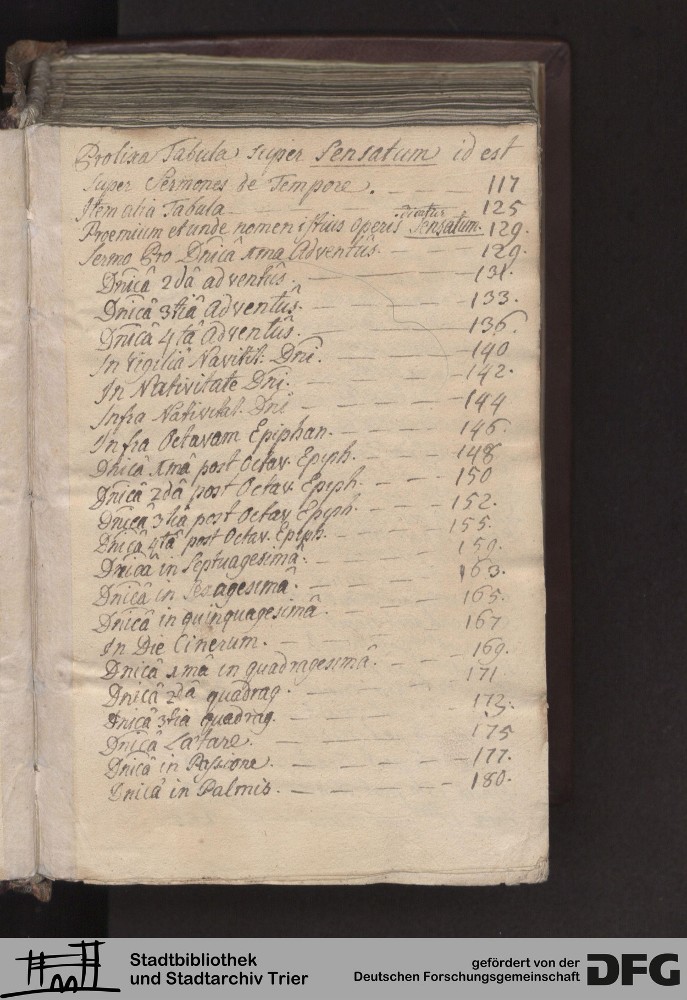 Prolixa Tabula super Sensatum id est
super Sermones de Tempore. 117
Item alia Tabula 125
Proemium et unde nomen istius operis dicatur Sensatum. 129.
Sermo Pro Dnicâ 1ma Adventûs. 129.
Dnicâ 2dâ adventûs. 131.
Dnicâ 3tiâ Adventûs. 133.
Dnicâ 4tâ Adventûs. 136.
In Vigiliâ Nativit: Dni. 140
In Nativitate Dni. 142.
Infra Nativitat. Dni 144
Infra Octavam Epiphan. 146.
Dnicâ 1mâ post Octav. Epiph. 148.
Dnicâ 2dâ post Octav. Epiph. 150
Dnicâ 3tiâ post Octav. Epiph. 152.
Dnicâ 4tâ post Octav. Epiph. 155.
Dnicâ in Septuagesimâ. 159.
Dnicâ in Sexagesimâ. 163.
Dnicâ in quinquagesimâ. 165.
In Die Cinerum. 167
Dnicâ 1mâ in quadragesimâ. 169.
Dnicâ 2dâ quadrag. 171
Dnicâ 3tiâ quadrag. 173.
Dnicâ Lætare. 175
Dnicâ in Passione. 177.
Dnicâ in Palmis. 180.
Stadtbibliothek
und Stadtarchiv Trier
gefördert von der
Deutschen Forschungsgemeinschaft DFG